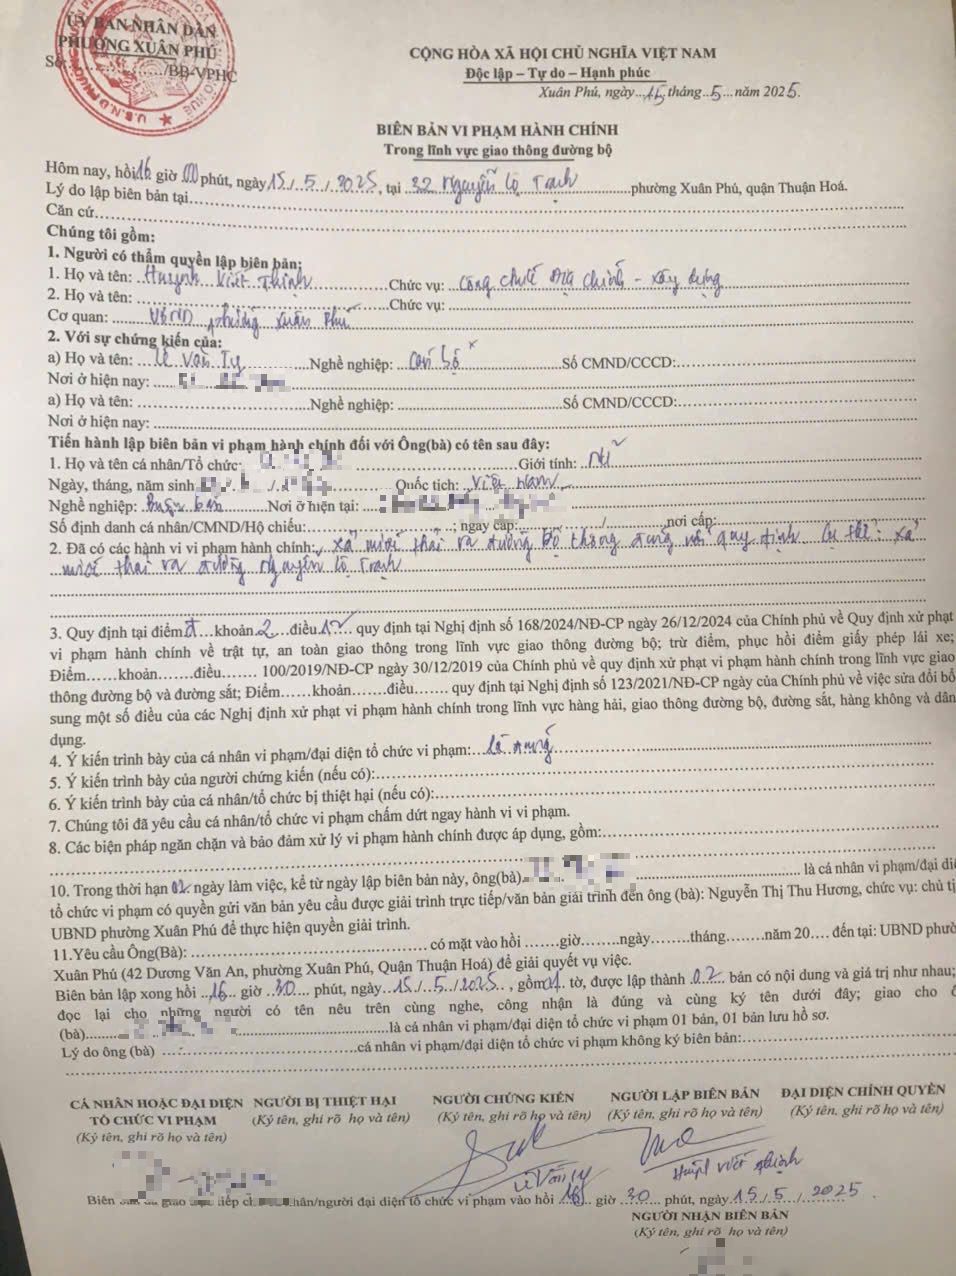 ỦY BAN NHÂN DÂN
PHƯỜNG XUÂN PHÚ
Số:........................./BB-VPHC
CỘNG HÒA XÃ HỘI CHỦ NGHĨA VIỆT NAM
Độc lập – Tự do – Hạnh phúc
Xuân Phú, ngày...15..tháng...5...năm 2025.
BIÊN BẢN VI PHẠM HÀNH CHÍNH
Trong lĩnh vực giao thông đường bộ
Hôm nay, hồi 16 giờ 00 phút, ngày 15./..5../..2025., tại 32 Nguyễn Lộ Trạch..........phường Xuân Phú, quận Thuận Hoá.
Lý do lập biên bản tại....................
Căn cứ....................
Chúng tôi gồm:
1. Người có thẩm quyền lập biên bản:
1. Họ và tên: Huỳnh Viết Thịnh....................Chức vụ: công chức địa chính - xây dựng
2. Họ và tên: ....................Chức vụ: ....................
Cơ quan: UBND phường Xuân Phú
2. Với sự chứng kiến của:
a) Họ và tên: Lê Văn Ty....................Nghề nghiệp: cán bộ....................Số CMND/CCCD:....................
Nơi ở hiện nay:
a) Họ và tên: ....................Nghề nghiệp: ....................Số CMND/CCCD:....................
Nơi ở hiện nay:....................
Tiến hành lập biên bản vi phạm hành chính đối với Ông(bà) có tên sau đây:
1. Họ và tên cá nhân/Tổ chức: ....................Giới tính: nữ
Ngày, tháng, năm sinh Quốc tịch: Việt Nam
Nghề nghiệp: Buôn bán Nơi ở hiện tại:
Số định danh cá nhân/CMND/Hộ chiếu:....................; ngày cấp:........../........../..........nơi cấp:....................
2. Đã có các hành vi vi phạm hành chính: xả nước thải ra đường bộ không đúng nơi quy định. Cụ thể: xả
nước thải ra đường Nguyễn Lộ Trạch
3. Quy định tại điểm đ...khoản 2...điều 12... quy định tại Nghị định số 168/2024/NĐ-CP ngày 26/12/2024 của Chính phủ về Quy định xử phạt
vi phạm hành chính về trật tự, an toàn giao thông trong lĩnh vực giao thông đường bộ; trừ điểm, phục hồi điểm giấy phép lái xe;
Điểm......khoản.......điều....... 100/2019/NĐ-CP ngày 30/12/2019 của Chính phủ về quy định xử phạt vi phạm hành chính trong lĩnh vực giao
thông đường bộ và đường sắt; Điểm.......khoản.......điều....... quy định tại Nghị định số 123/2021/NĐ-CP ngày của Chính phủ về việc sửa đổi bổ
sung một số điều của các Nghị định xử phạt vi phạm hành chính trong lĩnh vực hàng hải, giao thông đường bộ, đường sắt, hàng không và dân
dụng.
4. Ý kiến trình bày của cá nhân vi phạm/đại diện tổ chức vi phạm: là đúng
5. Ý kiến trình bày của người chứng kiến (nếu có):....................
6. Ý kiến trình bày của cá nhân/tổ chức bị thiệt hại (nếu có):....................
7. Chúng tôi đã yêu cầu cá nhân/tổ chức vi phạm chấm dứt ngay hành vi vi phạm.
8. Các biện pháp ngăn chặn và bảo đảm xử lý vi phạm hành chính được áp dụng, gồm:....................
10. Trong thời hạn 02 ngày làm việc, kể từ ngày lập biên bản này, ông(bà) .................... là cá nhân vi phạm/đại diệ
tổ chức vi phạm có quyền gửi văn bản yêu cầu được giải trình trực tiếp/văn bản giải trình đến ông (bà): Nguyễn Thị Thu Hương, chức vụ: chủ tị
UBND phường Xuân Phú để thực hiện quyền giải trình.
11.Yêu cầu Ông(Bà): .................... có mặt vào hồi .......giờ........ngày.........tháng.........năm 20.... đến tại: UBND phườ
Xuân Phú (42 Dương Văn An, phường Xuân Phú, Quận Thuận Hoá) để giải quyết vụ việc.
Biên bản lập xong hồi ..16.. giờ ..30... phút, ngày..15../..5./2025.. , gồm 01. tờ, được lập thành 02.. bản có nội dung và giá trị như nhau;
đọc lại cho những người có tên nêu trên cùng nghe, công nhận là đúng và cùng ký tên dưới đây; giao cho ô
(bà)....................là cá nhân vi phạm/đại diện tổ chức vi phạm 01 bản, 01 bản lưu hồ sơ.
Lý do ông (bà) ....................cá nhân vi phạm/đại diện tổ chức vi phạm không ký biên bản:....................
CÁ NHÂN HOẶC ĐẠI DIỆN
TỔ CHỨC VI PHẠM
(Ký tên, ghi rõ họ và tên)
NGƯỜI BỊ THIỆT HẠI
(Ký tên, ghi rõ họ và tên)
NGƯỜI CHỨNG KIẾN
(Ký tên, ghi rõ họ và tên)
NGƯỜI LẬP BIÊN BẢN
(Ký tên, ghi rõ họ và tên)
ĐẠI DIỆN CHÍNH QUYỀN
(Ký tên, ghi rõ họ và tên)
Lê Văn Ty
Huỳnh Viết Thịnh
Biên giao tiếp nhân/người đại diện tổ chức vi phạm vào hồi 16... giờ ..30.... phút, ngày..15./.5./..2025.
NGƯỜI NHẬN BIÊN BẢN
(Ký tên, ghi rõ họ và tên)